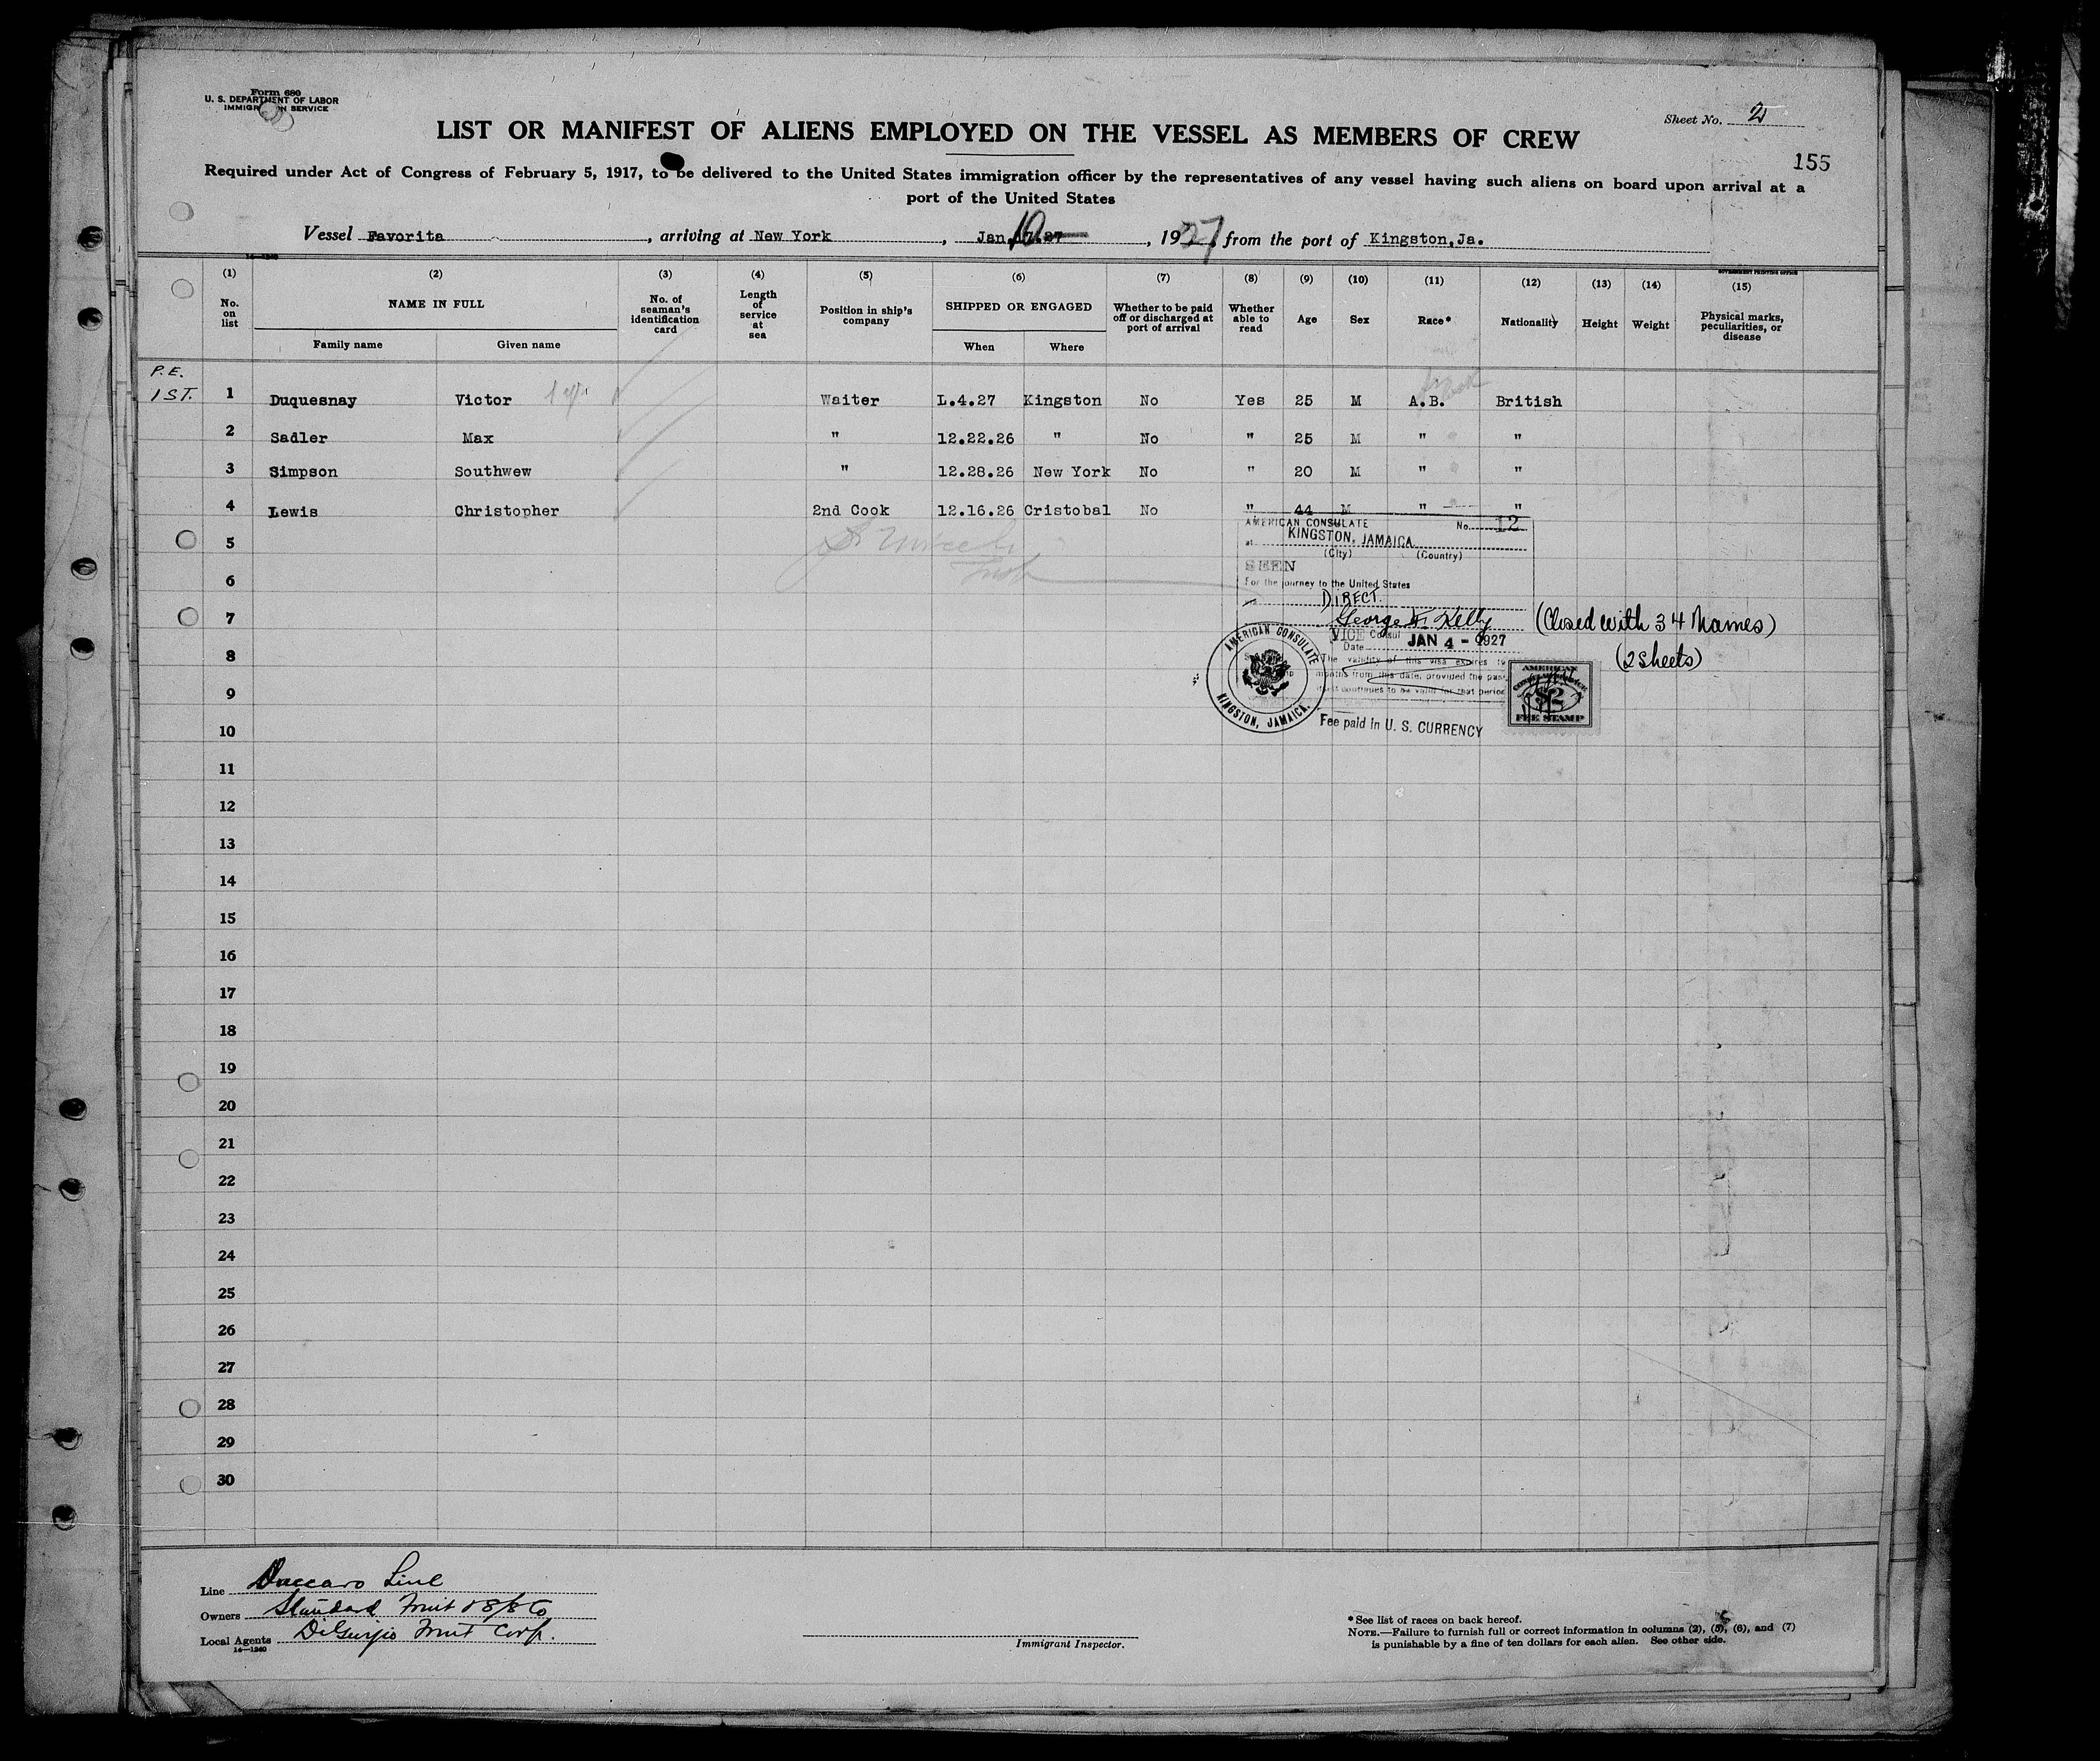 Form 680
U. S. DEPARTMENT OF LABOR
IMMIGRATION SERVICE
Sheet No. 2
LIST OR MANIFEST OF ALIENS EMPLOYED ON THE VESSEL AS MEMBERS OF CREW
155
Required under Act of Congress of February 5, 1917, to be delivered to the United States immigration officer by the representatives of any vessel having such aliens on board upon arrival at a
port of the United States
Vessel Favorita, arriving at New York, Jan. 10, 1927, from the port of Kingston,Ja.
14—1240
GOVERNMENT PRINTING OFFICE
(1) (2) (3) (4) (5) (6) (7) (8) (9) (10) (11) (12) (13) (14) (15)
No. on list
NAME IN FULL
Family name Given name
No. of seaman's identification card
Length of service at sea
Position in ship's company
SHIPPED OR ENGAGED
When Where
Whether to be paid off or discharged at port of arrival
Whether able to read
Age
Sex
Race*
Nationality
Height
Weight
Physical marks, peculiarities, or disease
P.E.
1ST.
1 Duquesnay Victor Waiter L.4.27 Kingston No Yes 25 M A.B. British
2 Sadler Max " 12.22.26 " No " 25 M " "
3 Simpson Southwew " 12.28.26 New York No " 20 M " "
4 Lewis Christopher 2nd Cook 12.16.26 Cristobal No " 44 M " "
5
6
7
8
9
10
11
12
13
14
15
16
17
18
19
20
21
22
23
24
25
26
27
28
29
30
AMERICAN CONSULATE No. 12
at KINGSTON, JAMAICA.
(City) (Country)
SEEN
For the journey to the United States
DIRECT.
George F. Kelly
VICE Consul
Date JAN 4 - 1927
The validity of this visa expires
months from this date, provided the
continues to be valid for that period
Fee paid in U. S. CURRENCY
AMERICAN CONSULATE
KINGSTON, JAMAICA.
AMERICAN
$2
FEE STAMP
(Closed with 34 Names)
(2 sheets)
Line Vaccaro Line
Owners Standard Fruit & S/S Co
Local Agents DiGiorgio Fruit Corp.
14—1240
Immigrant Inspector.
*See list of races on back hereof.
NOTE.—Failure to furnish full or correct information in columns (2), (5), (6), and (7)
is punishable by a fine of ten dollars for each alien. See other side.